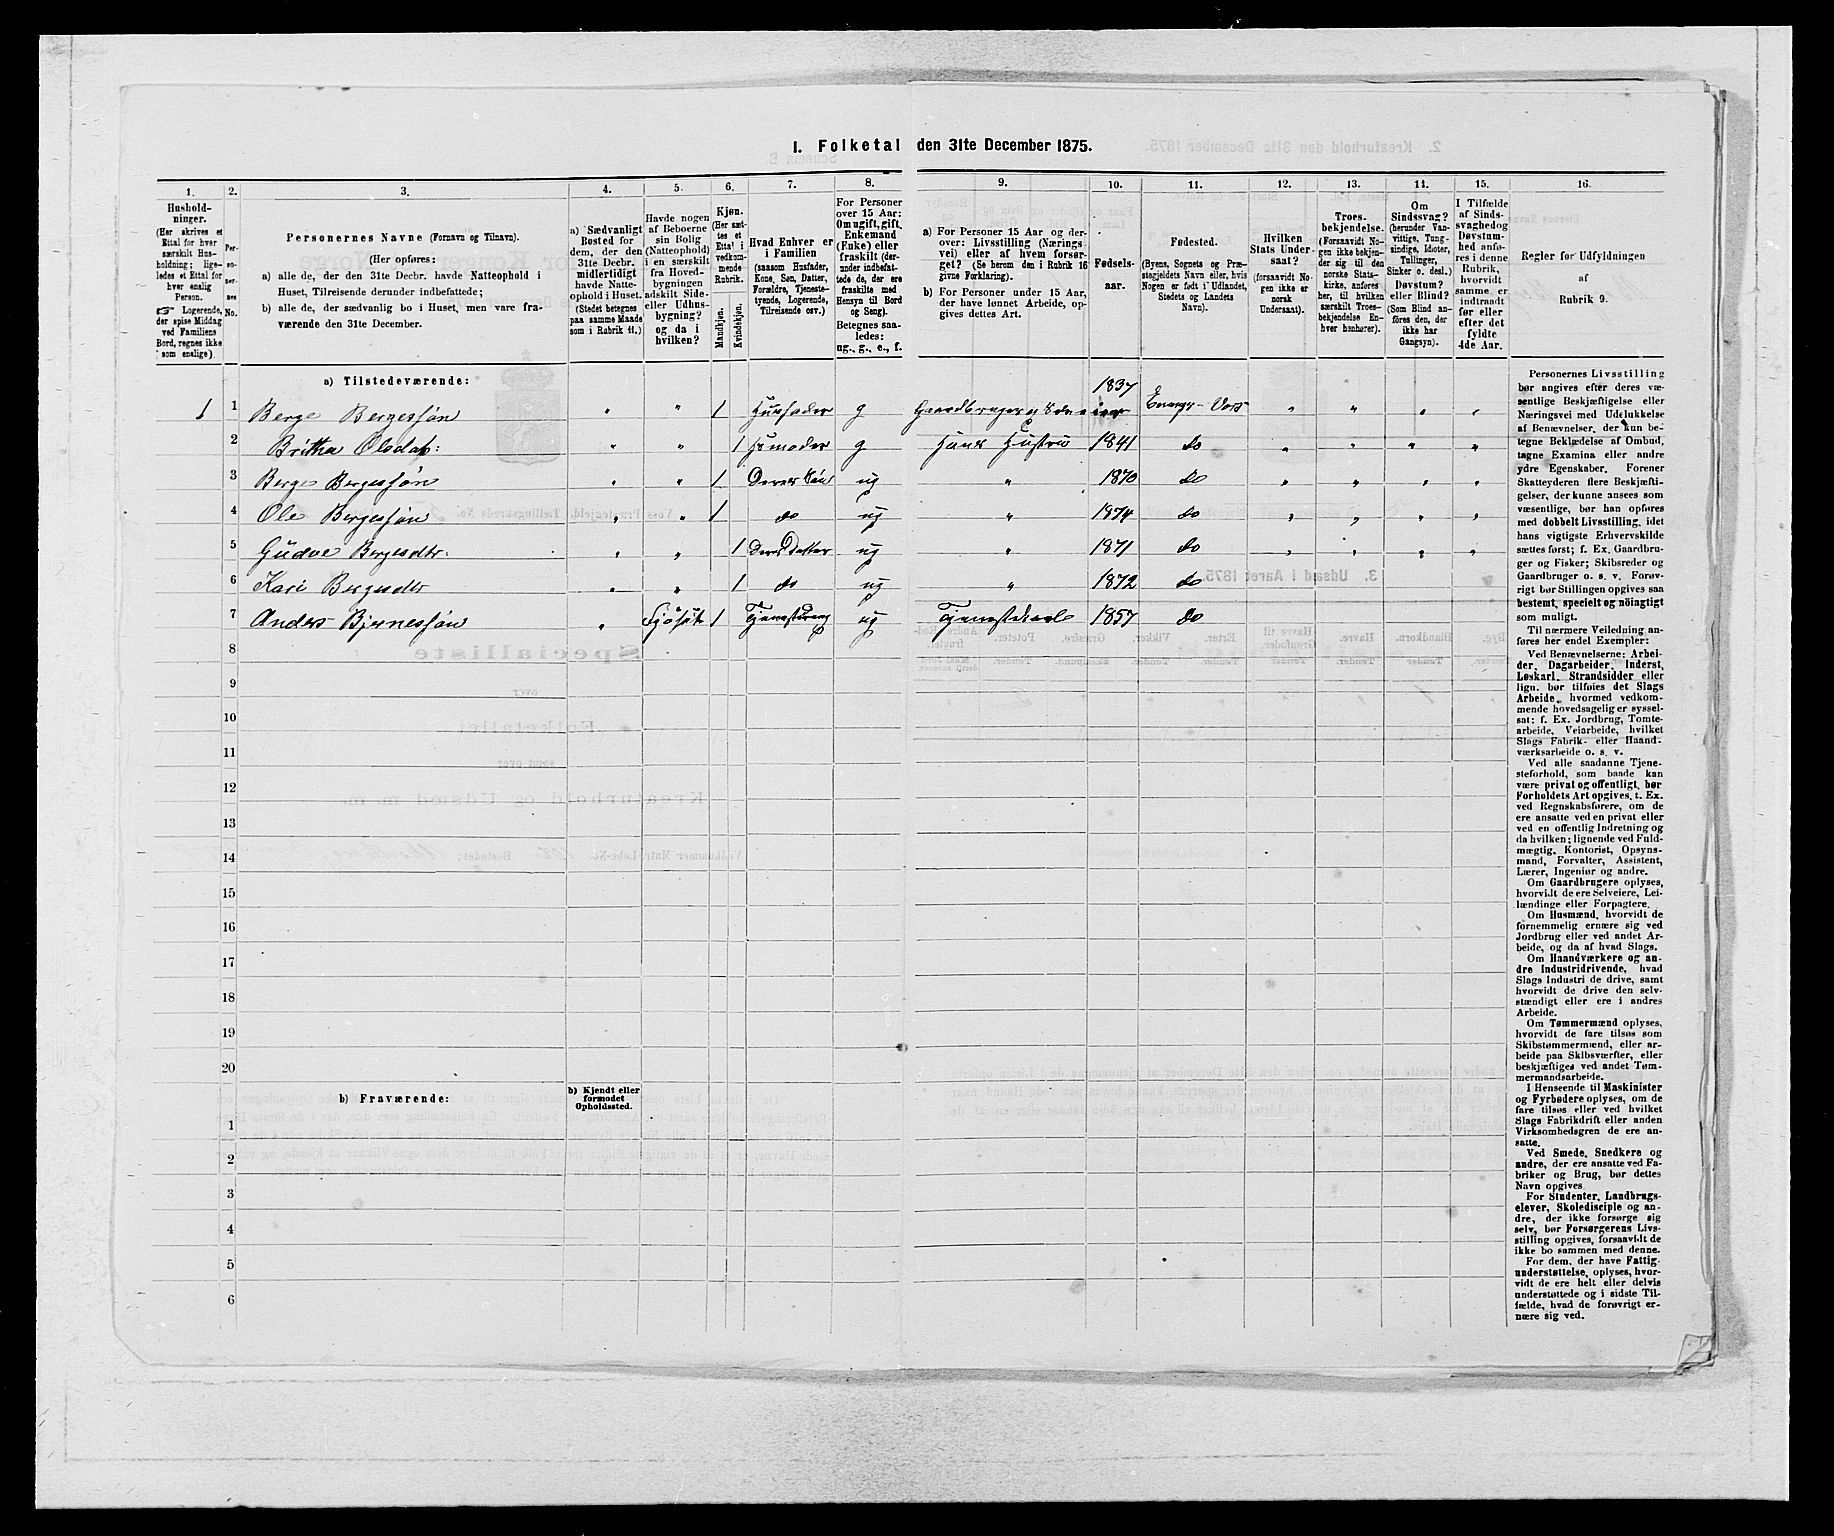 1. Folketal den 31te December 1875.
1. 2. 3. 4. 5. 6. 7. 8. 9. 10. 11. 12. 13. 14. 15. 16.
Hushold-
ninger.
(Her skrives et
Ettal for hver
særskilt Hus-
holdning; lige-
ledes et Ettal for
hver enslig
Person.
☞ Logerende,
der spise Middag
ved Familiens
Bord, regnes ikke
som enslige).
Per-
so-
ner-
nes
No.
Personernes Navne (Fornavn og Tilnavn).
(Her opføres:
a) alle de, der den 31te Decbr. havde Natteophold i
Huset, Tilreisende derunder indbefattede;
b) alle de, der sædvanlig bo i Huset, men vare fra-
værende den 31te December.
a) Sædvanligt
Bosted for
dem, der den
31te Decbr.
midlertidigt
havde Natte-
ophold i Huset.
(Stedet betegnes
paa samme Maade
som i Rubrik 11.)
Havde nogen
af Beboerne
sin Bolig
(Natteophold)
i en særskilt
fra Hoved-
bygningen
adskilt Side-
eller Udhus-
bygning?
og da i
hvilken?
Kjøn.
(Her sæt-
tes et
Ettal i
vedkom-
mende
Rubrik.
Mandkjøn.
Kvindekjøn.
Hvad Enhver er
i Familien
(saasom Husfader,
Kone, Søn, Datter,
Forældre, Tjeneste-
tyende, Logerende,
Tilreisende osv.)
For Personer
over 15 Aar:
Om ugift, gift,
Enkemand
(Enke) eller
fraskilt (der-
under indbefat-
tede de, der ere
fraskilte med
Hensyn til Bord
og Seng).
Betegnes saa-
ledes:
ug., g., e., f.
a) For Personer 15 Aar og der-
over: Livsstilling (Nærings-
vei) eller af hvem forsør-
get? (Se herom den i Rubrik 16
givne Forklaring).
b) For Personer under 15 Aar,
der have lønnet Arbeide, op-
gives dettes Art.
Fødsels-
aar.
Fødested.
(Byens, Sognets og Præ-
stegjeldets Navn eller, hvis
Nogen er født i Udlandet,
Stedets og Landets
Navn).
Hvilken
Stats Under-
saat?
(forsaavidt No-
gen ikke er
norsk
Undersaat).
Troes-
bekjendelse.
(Forsaavidt No-
gen ikke bekjen-
der sig til den
norske Stats-
kirke, anføres
her, til hvilken
særskilt Troes-
bekjendelse En-
hver henhører).
Om
Sindssvag?
(herunder Van-
vittige, Tung-
sindige, Idioter,
Tullinger,
Sinker o. desl.)
Døvstum?
eller Blind?
(Som Blind an-
føres den, der
ikke har
Gangsyn).
I Tilfælde
af Sinds-
svaghed og
Døvstum-
hed anfø-
res i denne
Rubrik,
hvorvidt
samme er
indtraadt
før eller
efter det
fyldte
4de Aar.
Regler for Udfyldningen
af
Rubrik 9.
a) Tilstedeværende:
1 1 Berge Bergessøn " " 1 Husfader g Gaardbruger og Selveier 1837 Evanger - Voss " " " "
2 Britha Olsdat: " " 1 Husmoder g Hans Hustru 1841 do " " " "
3 Berge Bergessøn " " 1 Deres Søn ug " 1870 do " " " "
4 Ole Bergessøn " " 1 do ug " 1874 do " " " "
5 Gudve Bergesdtr: " " 1 Deres Datter ug " 1871 do " " " "
6 Kari Bergesdtr " " 1 do ug " 1872 do
7 Anders Bjørnessøn " 1 Tjenestdreng ug Tjenestekarl 1857 do
8
9
10
11
12
13
14
15
16
17
18
19
20
b) Fraværende:
b) Kjendt eller
formodet
Opholdssted.
1
2
3
4
5
6
Personernes Livsstilling
bør angives efter deres væ-
sentlige Beskjæftigelse eller
Næringsvei med Udelukkelse
af Benævnelser, der kun be-
tegne Beklædelse af Ombud,
tagne Examina eller andre
ydre Egenskaber. Forener
Skatteyderen flere Beskjæfti-
gelser, der kunne ansees som
væsentlige, bør han opføres
med dobbelt Livsstilling, idet
hans vigtigste Erhvervskilde
sættes først; f. Ex. Gaardbru-
ger og Fisker; Skibsreder og
Gaardbruger o. s. v. Forøv-
rigt bør Stillingen opgives saa
bestemt, specielt og nöiagtigt
som muligt.
Til nærmere Veiledning an-
føres her endel Exempler:
Ved Benævnelserne: Arbei-
der, Dagarbeider, Inderst,
Løskarl, Strandsidder eller
lign. bør tilføies det Slags
Arbeide, hvormed vedkom-
mende hovedsagelig er syssel-
sat: f. Ex. Jordbrug, Tomte-
arbeide, Veiarbeide, hvilket
Slags Fabrik- eller Haand-
værksarbeide o. s. v.
Ved alle saadanne Tjene-
steforhold, som baade kan
være privat og offentligt, bør
Forholdets Art opgives. t. Ex.
ved Regnskabsførere, om de
ere ansatte ved en privat eller
ved en offentlig Indretning og
da hvilken; lignende ved Fuld-
mægtig, Kontorist, Opsyns-
mand, Forvalter, Assistent,
Lærer, Ingeniør og andre.
Om Gaardbrugere oplyses,
hvorvidt de ere Selveiere, Lei-
lændinge eller Forpagtere.
Om Husmænd, hvorvidt de
fornemmelig ernære sig ved
Jordbrug eller ved andet Ar-
beide, og da af hvad Slags.
Om Haandværkere og an-
dre Industridrivende, hvad
Slags Industri de drive, samt
hvorvidt de drive den selv-
stændigt eller ere i andres
Arbeide.
Om Tømmermænd oplyses,
hvorvidt de fare tilsøs som
Skibstømmermænd, eller ar-
beide paa Skibsværfter, eller
beskjæftiges ved andet Tøm-
mermandsarbeide.
I Henseende til Maskinister
og Fyrbødere oplyses, om de
fare tilsøs eller ved hvilket
Slags Fabrikdrift eller anden
Virksomhedsgren de ere an-
satte.
Ved Smede, Snedkere og
andre, der ere ansatte ved Fa-
briker og Brug, bør dettes
Navn opgives.
For Studenter, Landbrugs-
elever, Skoledisciple og an-
dre, der ikke forsørge sig
selv, bør Forsørgerens Livs-
stilling opgives, forsaavidt de
ikke bo sammen med denne.
For dem, der have Fattig-
understøttelse, oplyses, hvor-
vidt de ere helt eller delvis
understøttede og i sidste Til-
fælde, hvad de forøvrigt er-
nære sig ved.